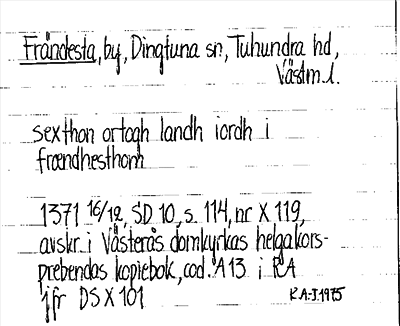 Frändesta, by, Dingtuna sn, Tuhundra hd,
Västm. l.
sexthon ortogh landh iordh i
frændhesthom
1371 16/12, SD 10, s. 114, nr X 119,
avskr. i Västerås domkyrkas helgakors-
prebendas kopiebok, cod. A 13 i RA
jfr DS X 101
R.A-J. 1975